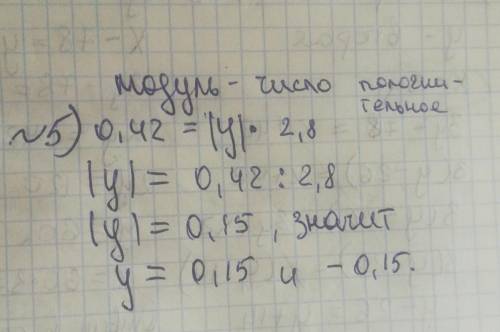 модуль - число положи-
тельное
№5) 0,42 = |y| · 2,8
|y| = 0,42 : 2,8
|y| = 0,15 , значит
y = 0,15 и - 0,15.